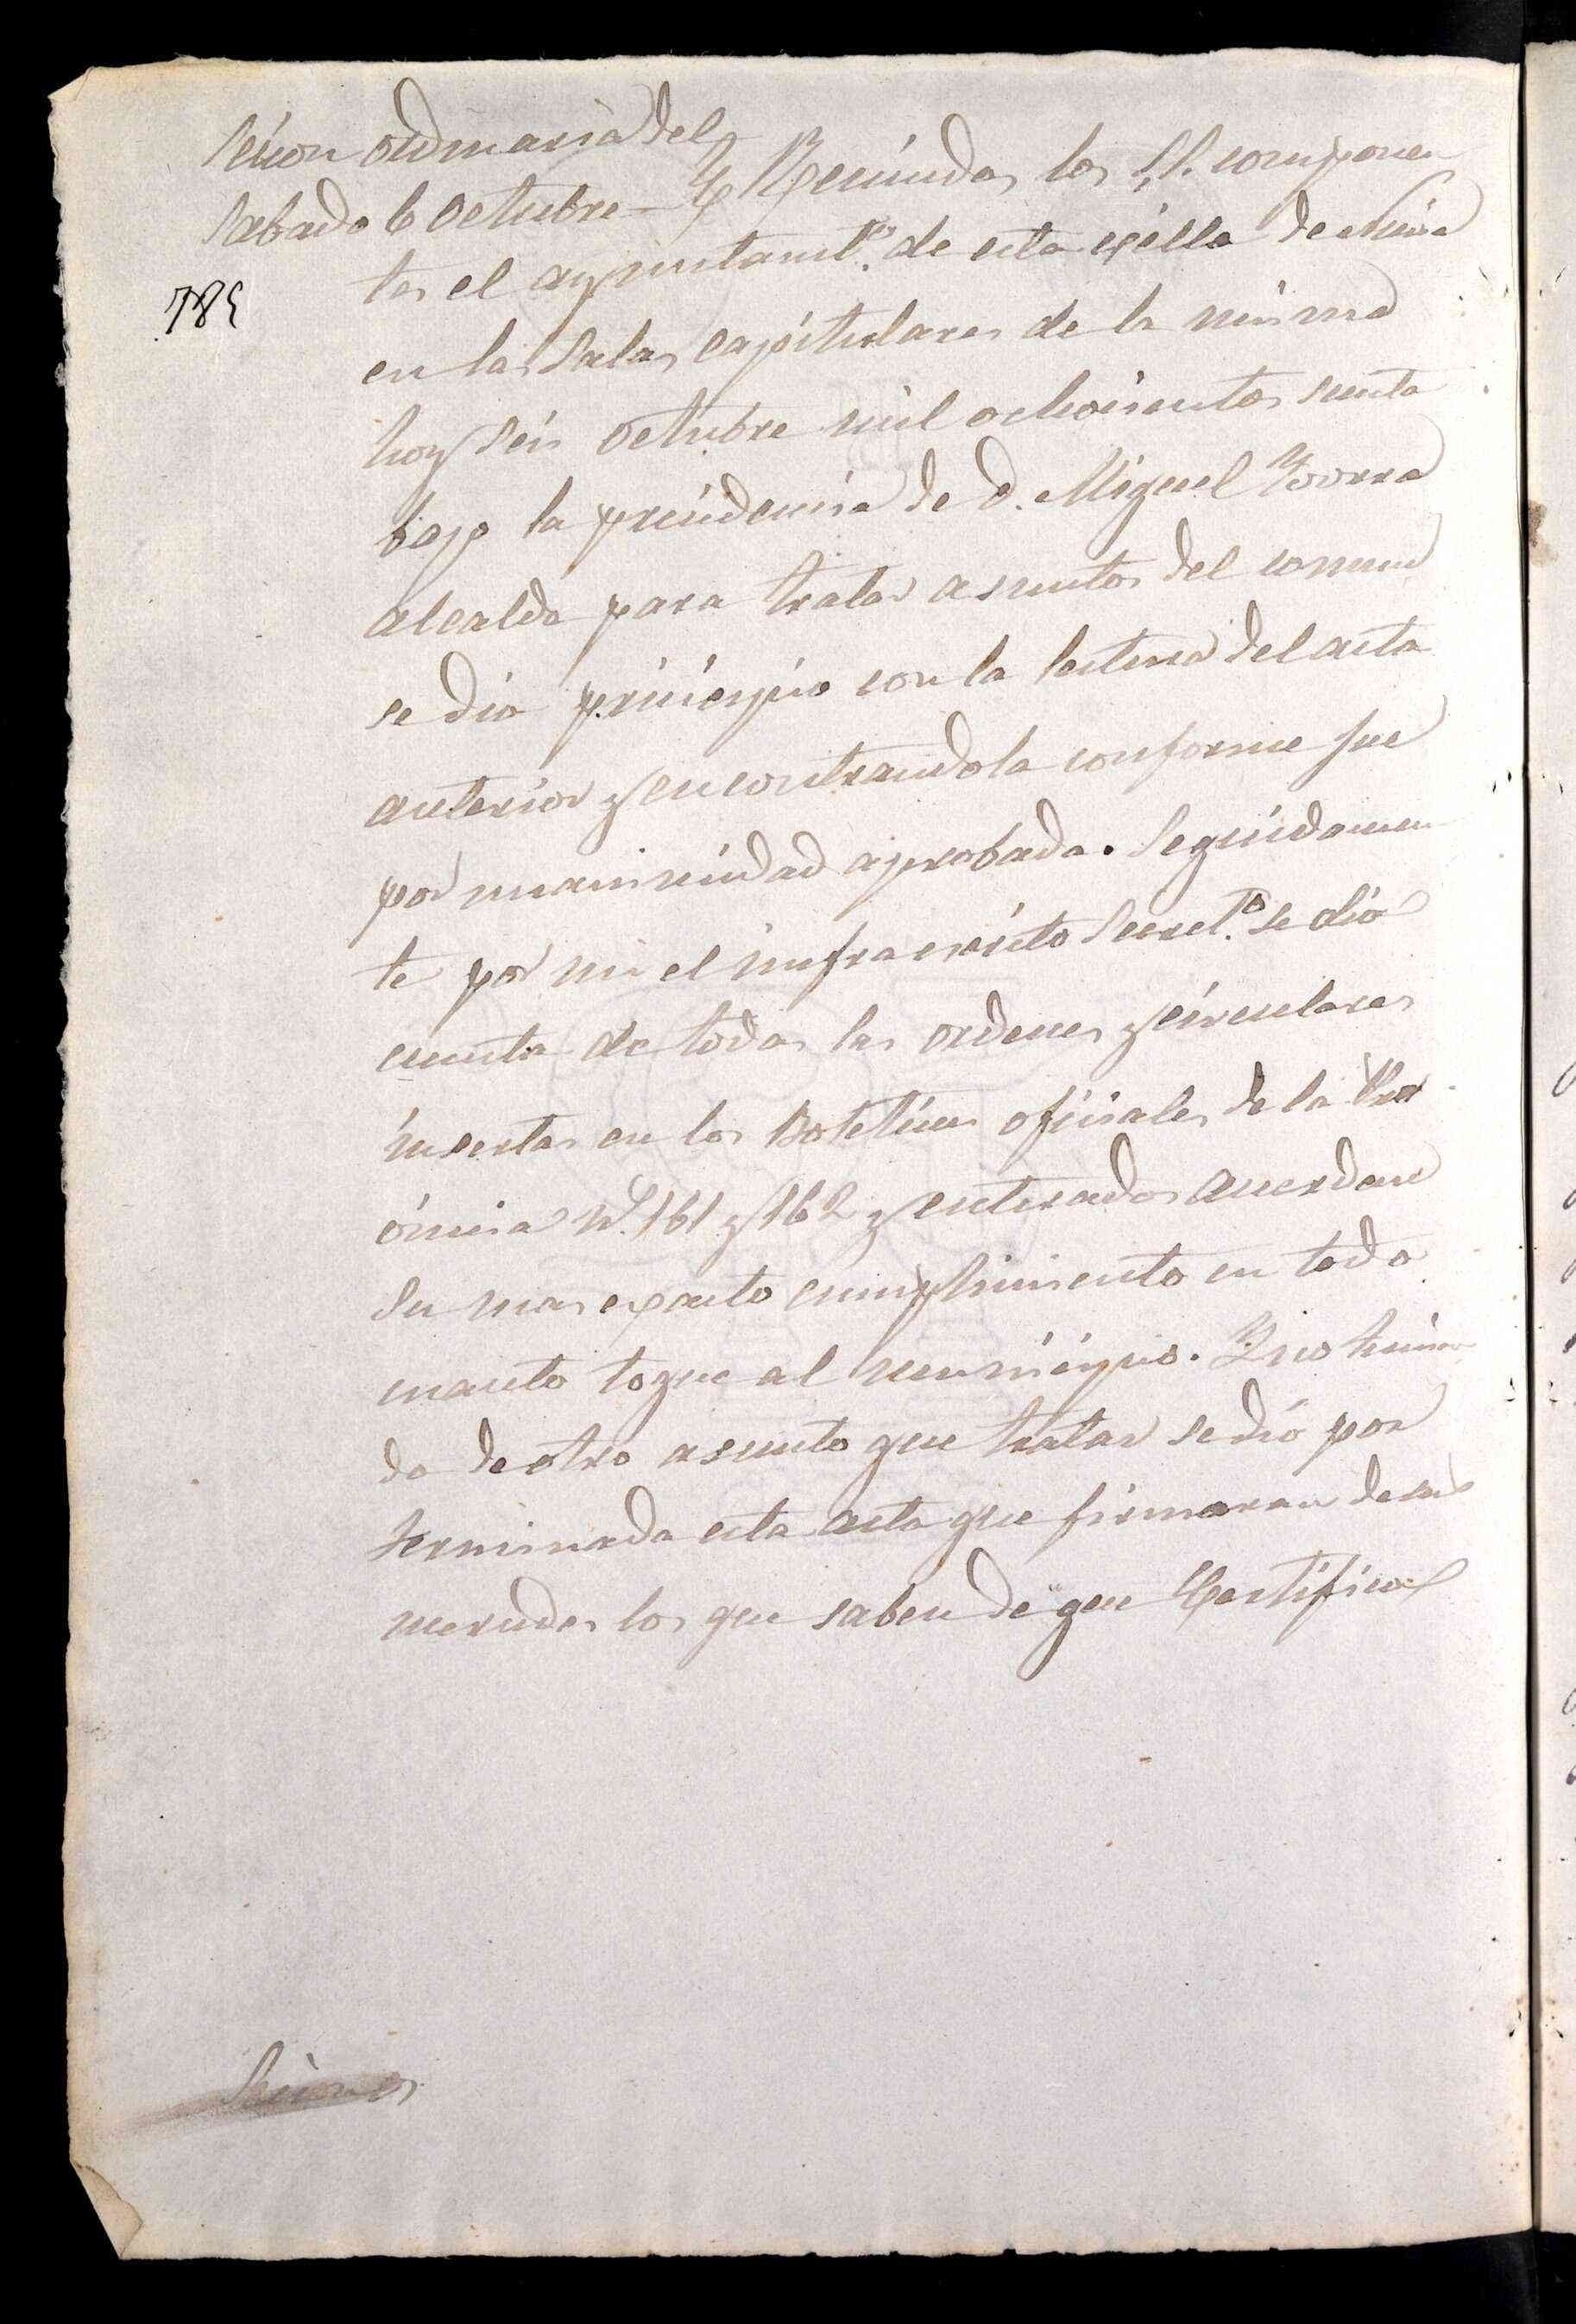 Sesion ordinaria del
Sabado 6 Octubre
Reunidos los SS. componen
tes el ayuntamt.º de esta villa de
en las Salas capitulares de la misma
hoy seis Octubre mil ochocientos senta
bajo la presidencia de D. Miguel
alcalde para tratar asuntos del comun
se dio principio con la lectura del acta
anterior y encontrandola conforme fue
por unanimidad aprobada. Seguidamen
te por mi el infraescrito Secret.º se dio
cuenta de todas las ordenes y circulares
insertas en los Boletines oficiales de la Pro
vincia nº 161 y 162 y enterados acuerdan
su mas exacto cumplimiento en todo
cuanto toque al municipio. Y no
do de otro asunto que tratar se dió por
terminada esta acta que firmaran de sus
mercedes los que saben de que Certifico
Sesiones